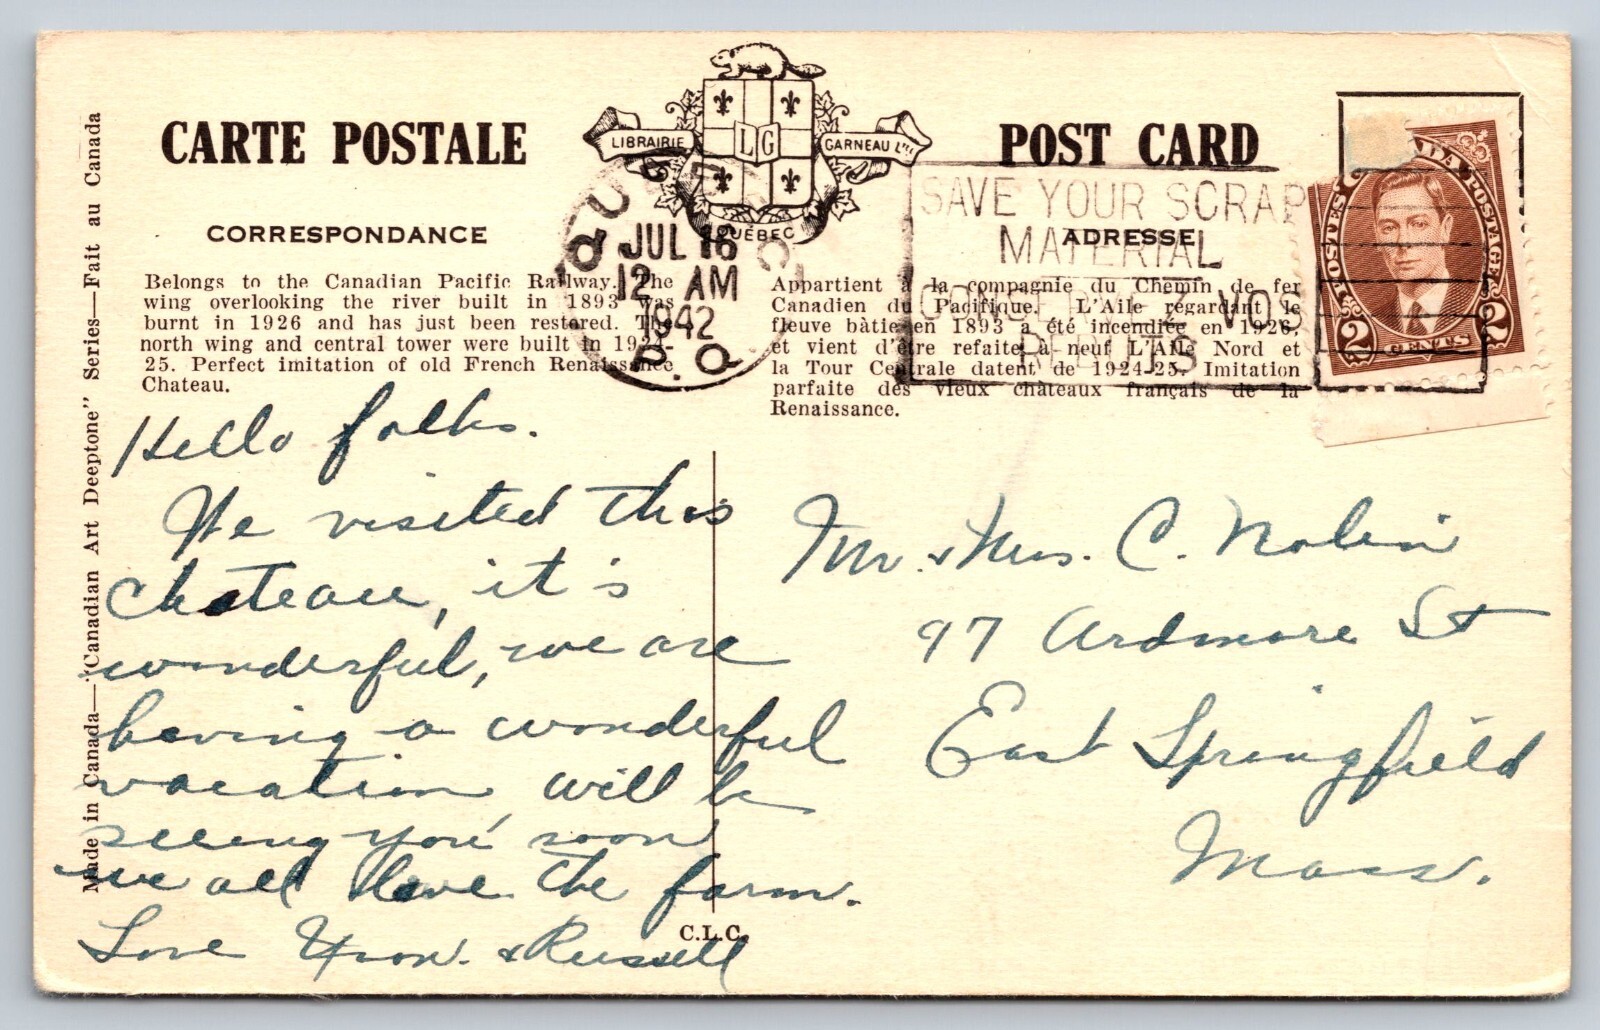 CARTE POSTALE
LIBRAIRIE GARNEAU Ltée
LG
QUÉBEC
POST CARD
CORRESPONDANCE
ADRESSE
Belongs to the Canadian Pacific Railway. The
wing overlooking the river built in 1893 was
burnt in 1926 and has just been restored. The
north wing and central tower were built in 1924-
25. Perfect imitation of old French Renaissance
Chateau.
Appartient à la compagnie du Chemin de fer
Canadien du Pacifique. L'Aile regardant le
fleuve bàtie en 1893 a été incendiée en 1926.
et vient d'être refaite à neuf L'Aile Nord et
la Tour Centrale datent de 1924-25. Imitation
parfaite des vieux châteaux français de la
Renaissance.
QUEBEC
JUL 16
12 AM
1942
P.Q.
SAVE YOUR SCRAP
MATERIAL
CONSERVEZ VOS
REBUTS
CANADA
POSTES POSTAGE
2 CENTS 2
Made in Canada—"Canadian Art Deeptone" Series—Fait au Canada
Hello folks.
We visited this
chateau, it's
wonderful, we are
having a wonderful
vacation will be
seeing you soon
we all love the farm.
Love & Russell
Mr. & Mrs. C. Nolin
97 Ardmore St
East Springfield
Mass.
C.L.C.